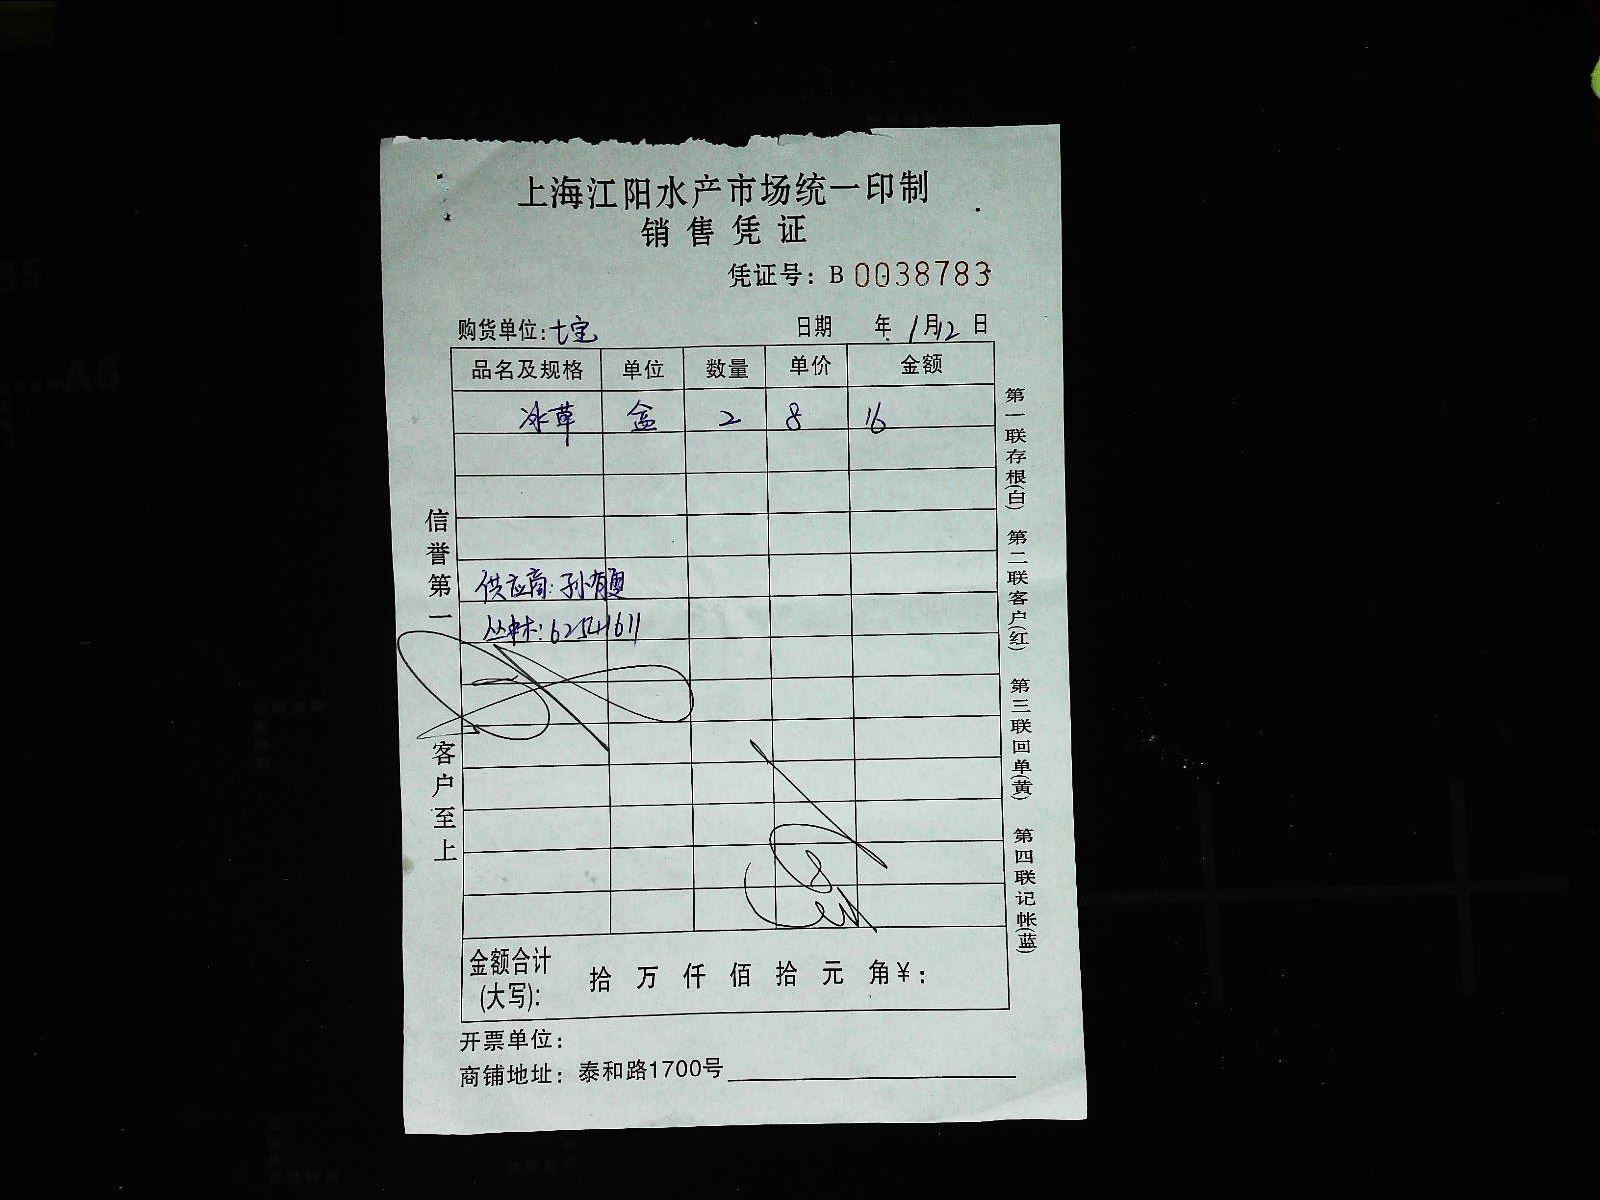 上海江阳水产市场统一印制
销售凭证
凭证号：B 0038783
购货单位：七宝 日期 年 1月12日
品名及规格 单位 数量 单价 金额
冰草 盒 2 8 16
供应商：孙有
62541611
金额合计(大写)： 拾 万 仟 佰 拾 元 角￥：
开票单位：
商铺地址：泰和路1700号
信誉第一 客户至上
第一联存根(白) 第二联客户(红) 第三联回单(黄) 第四联记帐(蓝)